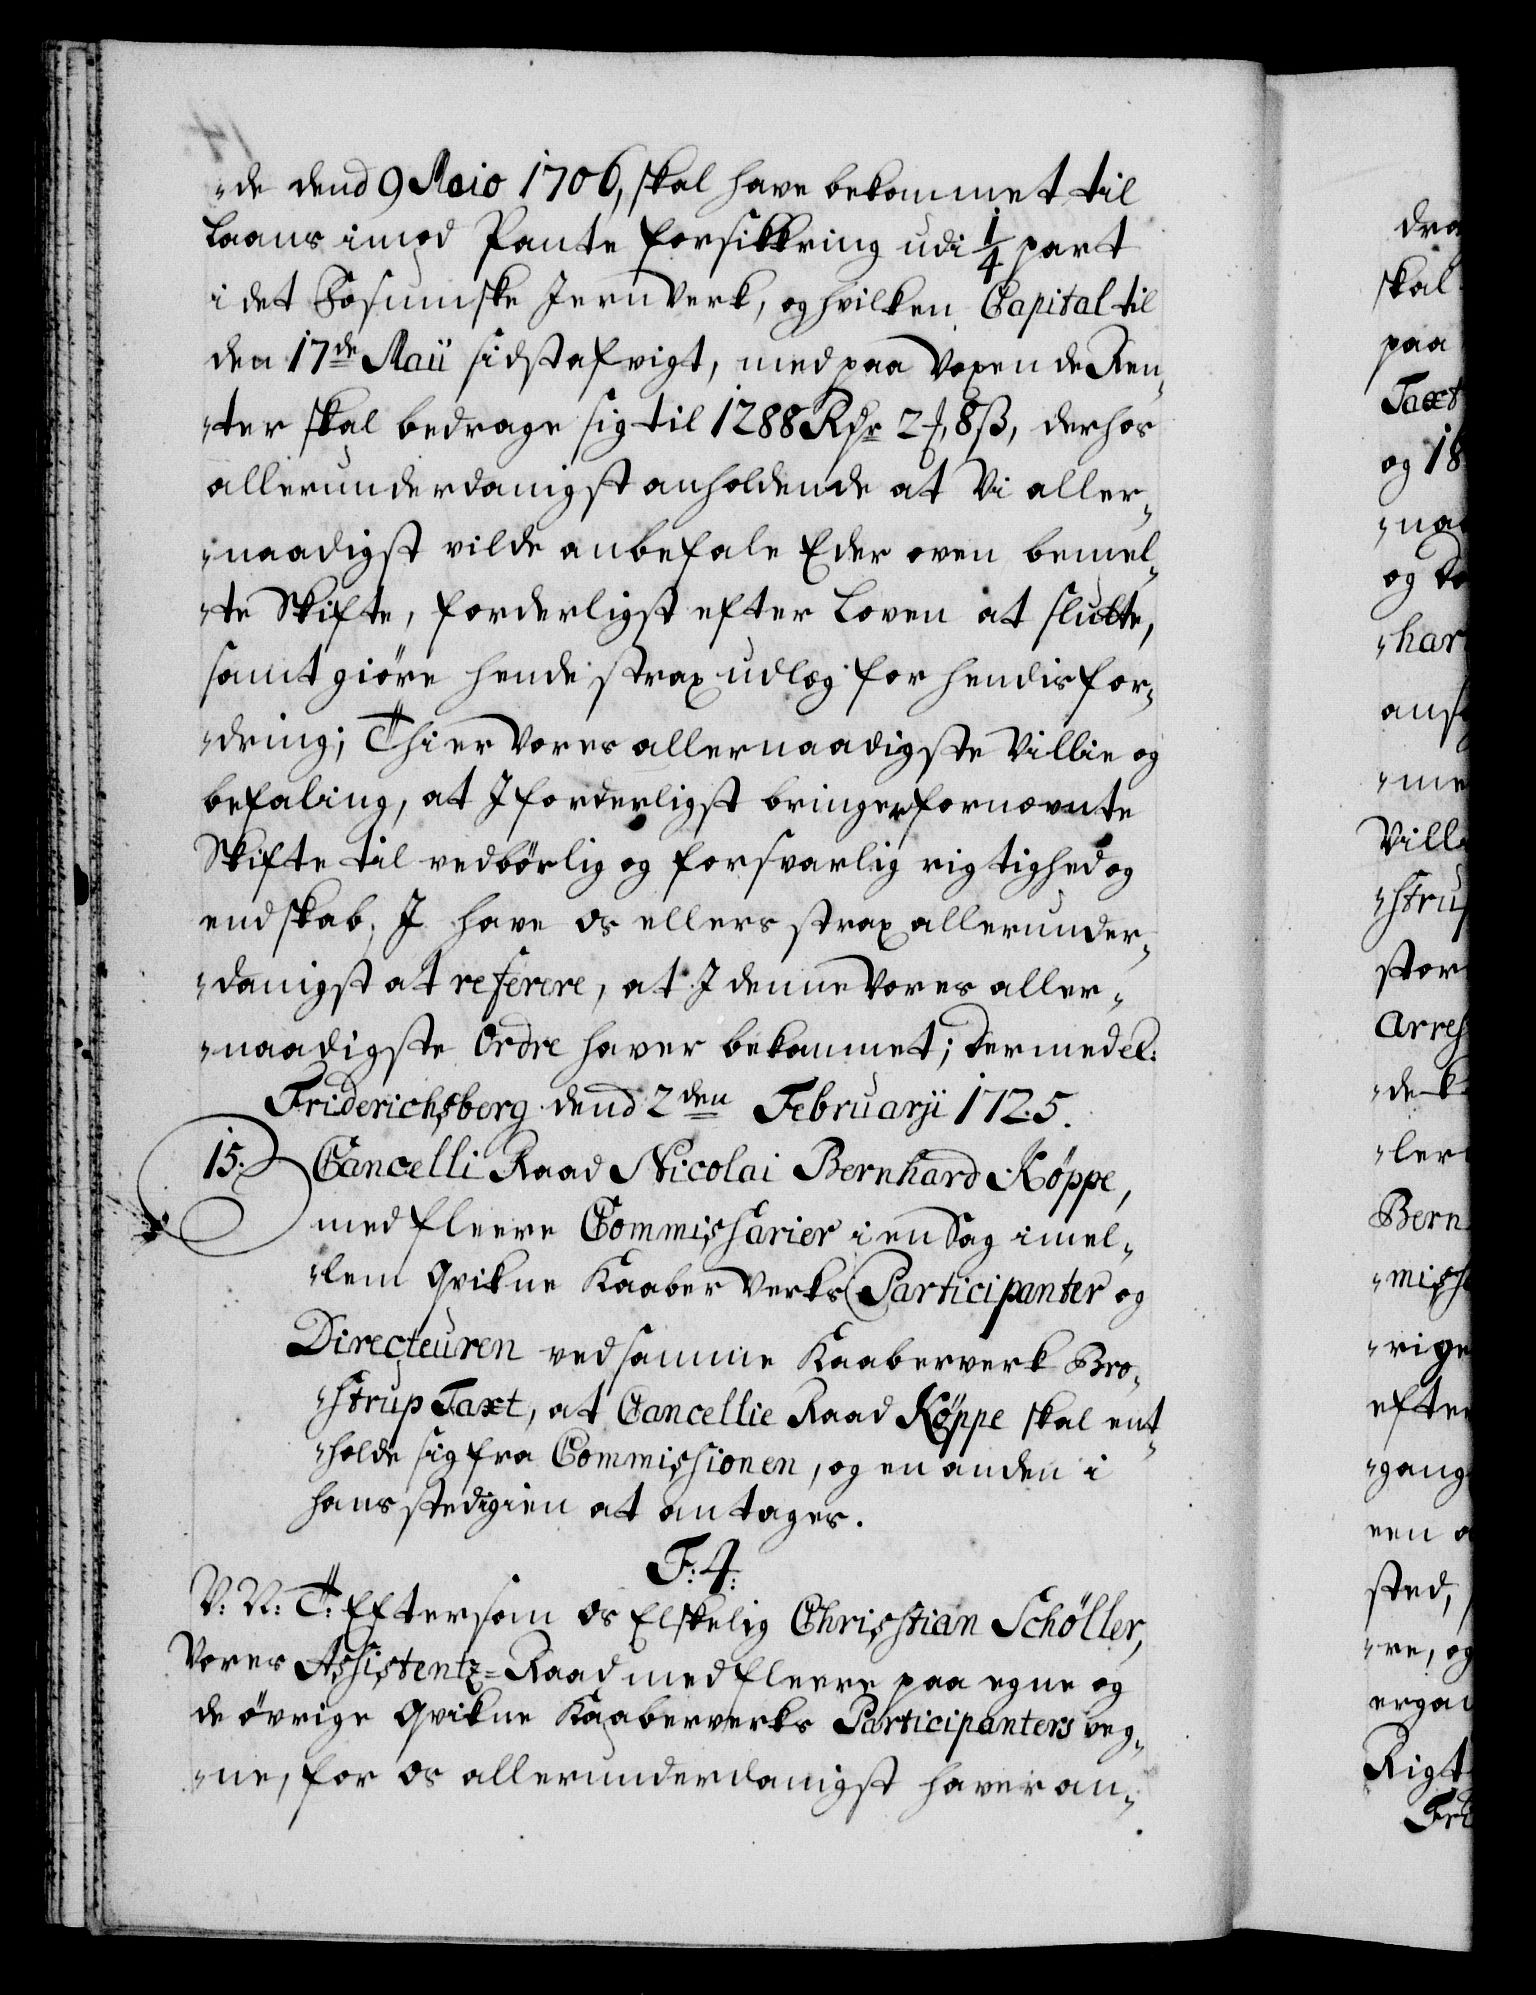 de dend 9 Maio 1706, skal have bekommet til
Laans imod Pante forsikkring udi 1/4 part
i det Fosumske Jernverk, og hvilken Capital til
den 17de Maii sidst afvigt, med paa voxende Ren-
-ter skal bedrage sig til 1288 Rdr 2 ƒ 8 ß, derhos
allerunderdanigst anholdende at Vi aller-
-naadigst vilde anbefale Eder oven bemel-
-te Skifte, forderligst efter Loven at slutte,
samt giöre hende strax udlæg for hendis for-
-dring; Thi er Vores allernaadigste Villie og
befaling, at I forderligst bringer fornævnte
Skifte til vedbörlig og forsvarlig rigtighed og
endskab, I have os ellers strax allerunder-
-danigst at referere, at I denne Vores aller-
-naadigste Ordre haver bekommet; dermed etc:
Friderichsberg dend 2den Februarii 1725.
15. Cancelli Raad Nicolai Bernhard Köppe,
med fleere Commissarier i en Sag imel-
-lem Qvikne Kaaber Verks Participanter og
Directeuren ved samme Kaaberverk Bro-
-strup Taxt, at Cancellie Raad Köppe skal ent-
-holde sig fra Commissionen, og en anden i
hans stedigien at antages.
F: 4:
V: N: T: Eftersom os Elskelig Christian Schöller,
Vores Assistentz-Raad med fleere paa egne og
de övrige Qvikne Kaaberverks Participanters veg-
-ne, for os allerunderdanigst haver an-
skal
paa
Taxt
og 18